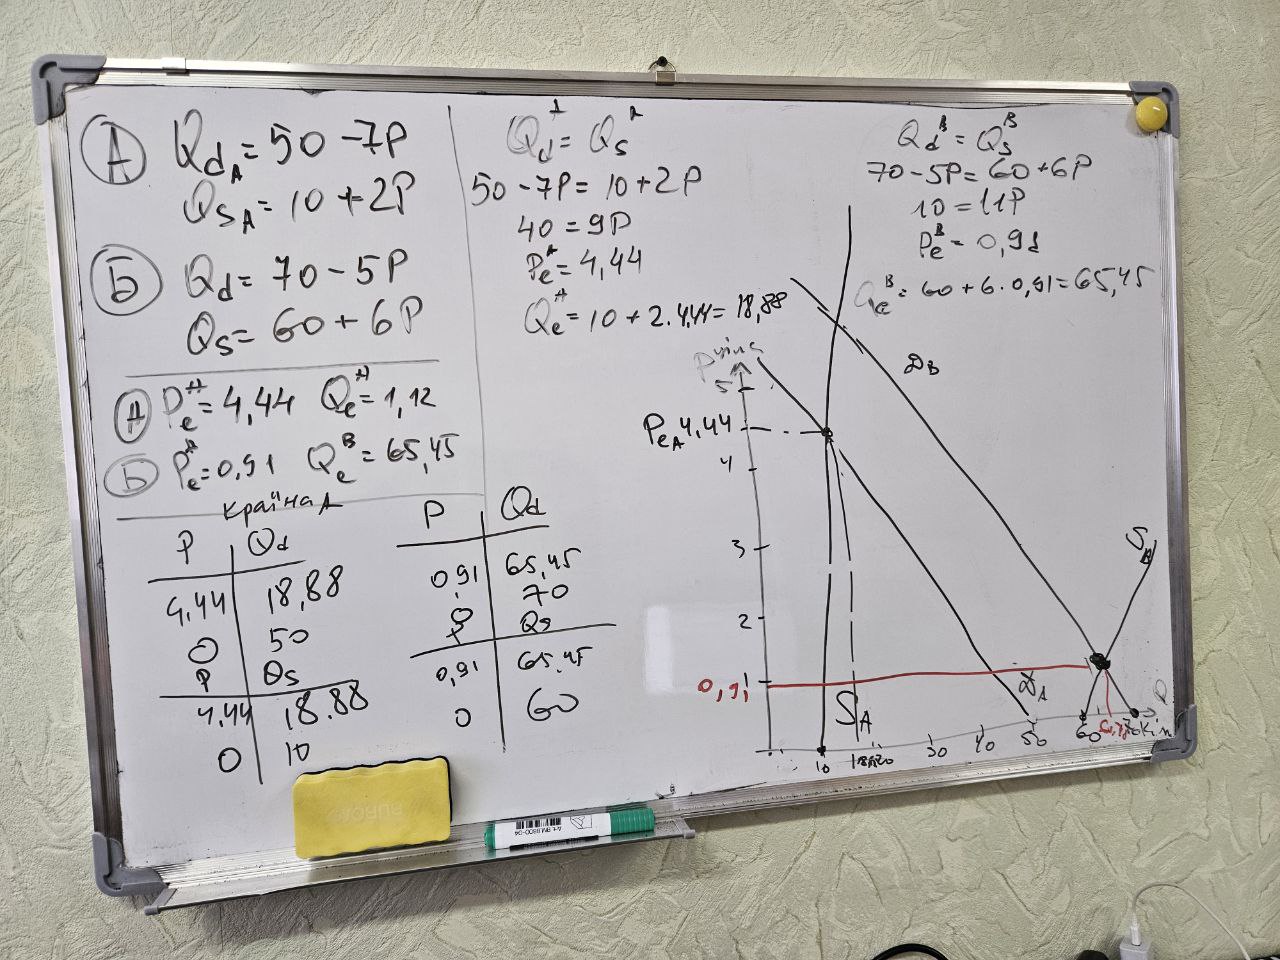 А
Qd_A = 50 - 7P
Qs_A = 10 + 2P
Б
Qd = 70 - 5P
Qs = 60 + 6P
А Pe^A = 4,44 Qe^A = 1,12
Б Pe^A = 0,91 Qe^B = 65,45
Країна А
P Qd
4,44 18,88
0 50
P Qs
4,44 18.88
0 10
P Qd
0,91 65,45
0 70
P Qs
0,91 65.45
0 60
Qd^A = Qs^A
50 - 7P = 10 + 2P
40 = 9P
Pe^A = 4,44
Qe^A = 10 + 2.4,44 = 18,88
Qd^B = Qs^B
70 - 5P = 60 + 6P
10 = 11P
Pe^B = 0,91
Qe^B = 60 + 6·0,91 = 65,45
P ціна
5
PeA 4,44
4
3
2
1
0,91
D_B
S_B
D_A
S_A
10
20
30
40
50
60
70
Q
BUROMAX